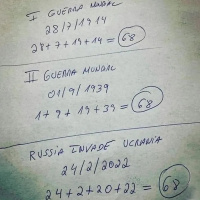 I GUERRA MUNDIAL
28/7/1914
28+7+19+14= 68
II GUERRA MUNDIAL
01/9/1939
1+9+19+39= 68
RUSSIA INVADE UCRANIA
24/2/2022
24+2+20+22= 68